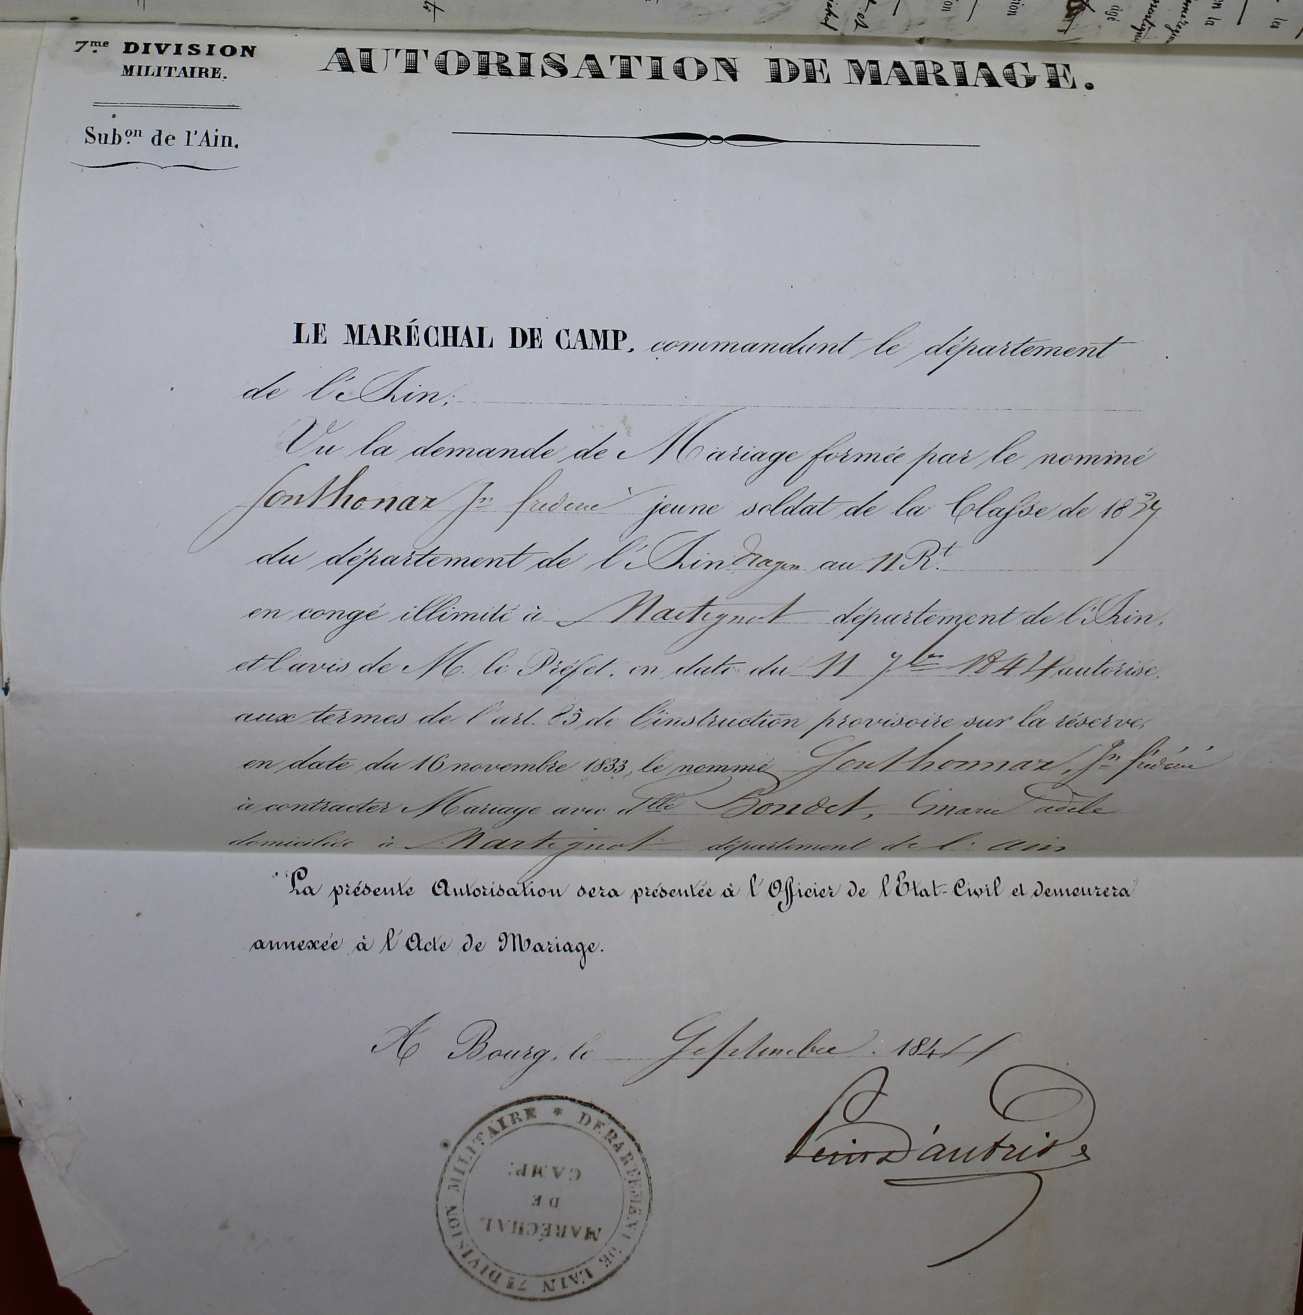 7.me DIVISION
MILITAIRE.
Sub.on de l'Ain.
AUTORISATION DE MARIAGE.
LE MARÉCHAL DE CAMP, commandant le département
de l'Ain,
Vu la demande de Mariage formée par le nommé
Gonthonax Jn fréderic jeune soldat de la Classe de 1837
du département de l'Ain dragon au 11 R.t
en congé illimité à Martignat département de l'Ain,
et l'avis de M. le Préfet, en date du 11 7bre 1844 autorise,
aux termes de l'art. 85 de l'instruction provisoire sur la réserve,
en date du 16 novembre 1833, le nommé Gonthonnax, Jn fréderic
à contracter Mariage avec dlle Bondet, Marie adele
domiciliée à Martignat département de l'ain
La présente Autorisation sera présentée à l'Officier de l'Etat-Civil et demeurera
annexée à l'Acte de Mariage.
A Bourg, le Septembre 1844
DEPARTEMENT DE L'AIN 7E DIVISION MILITAIRE *
MARÉCHAL
DE
CAMP.